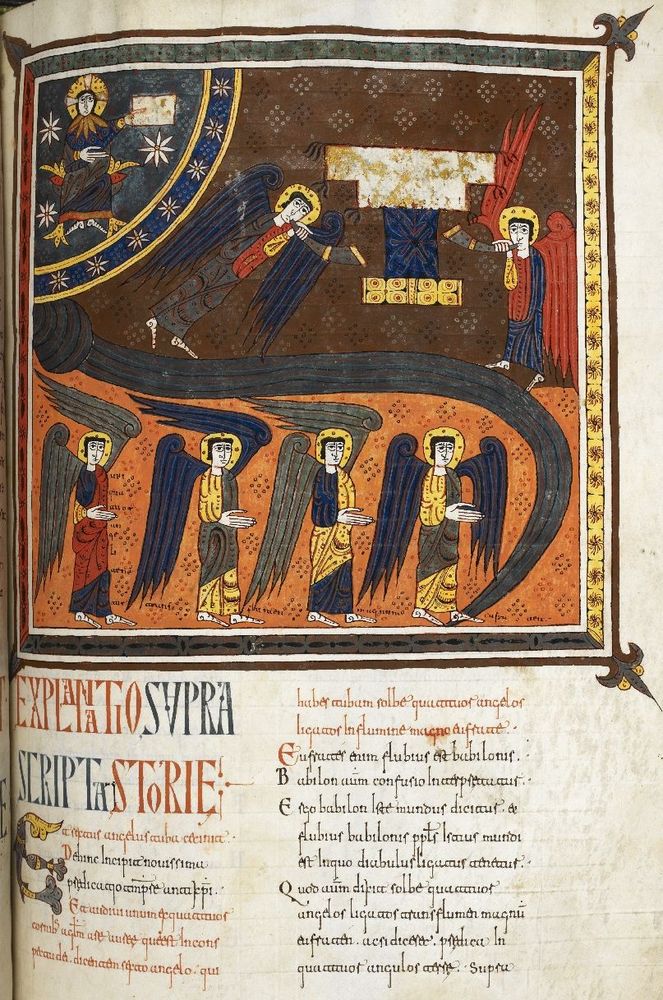 flumen
EXPLANATIO SUPRA
SCRIPTA STORIE:
Et sextus angelus tuba cecinit.
Dehinc Incipit novissima
Et audivi unum ex quattuor
are auree que est In cons
pectu dei. dicentem sexto angelo. qui
habes tubam solbe quattuor angelos
ligatos In flumine magno eufrate.
Eufrates enim flubius est babilonis.
Babilon aūm confusio Interpretatur.
Ergo babilon Iste mundus dicitur. et
flubius babilonis ppls Istius mundi
est In quo diabulus ligatus tenetur.
Quod aūm dixit solbe quattuor
angelos ligatos trans flumen magnū
eufraten. ac si diceret. predica In
quattuor angulos terre. Supra